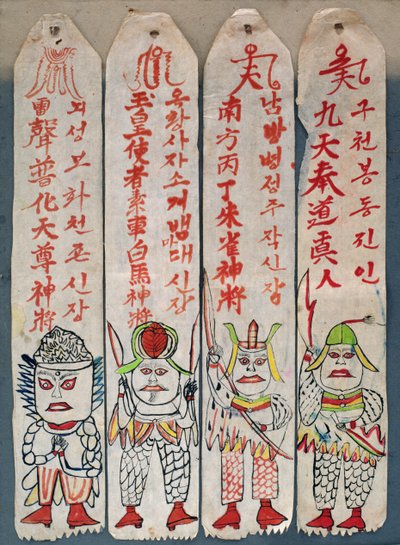 구천봉동진인
九天奉道眞人
남방병성주작신장
南方丙丁朱雀神將
옥황사자소거 신장
玉皇使者素車白馬神將
뇌성보화천존신장
雷聲普化天尊神將